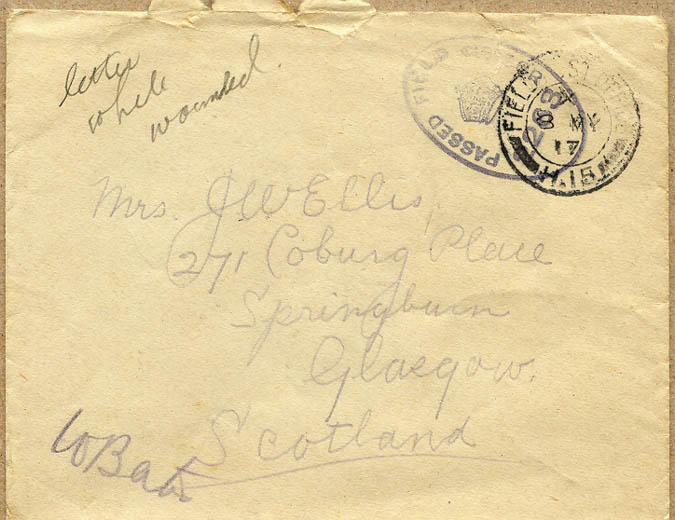 letter
while
wounded.
PASSED FIELD CENSOR
FIELD POST OFFICE
8 MY
17
H.15
Mrs. J W Ellis,
271 Coburg Place
Springburn
Glasgow.
Scotland